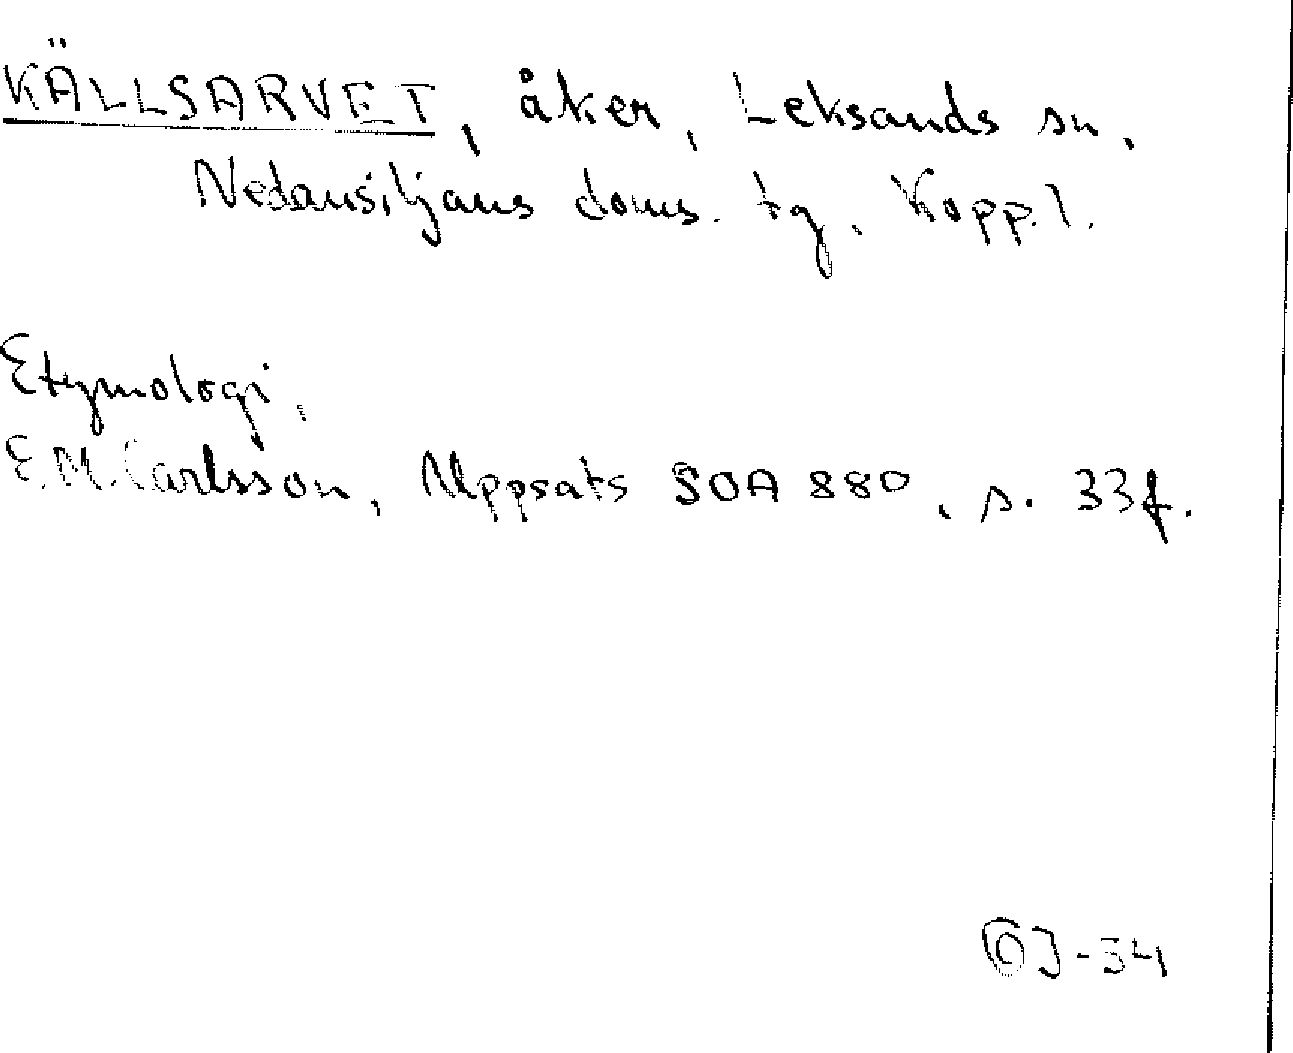 KÄLLSARVET, åker, Leksands sn,
Nedansiljans doms. tg, Kopp.l.
Etymologi.
E.M. Carlsson, Uppsats SOA 880, s. 33f.